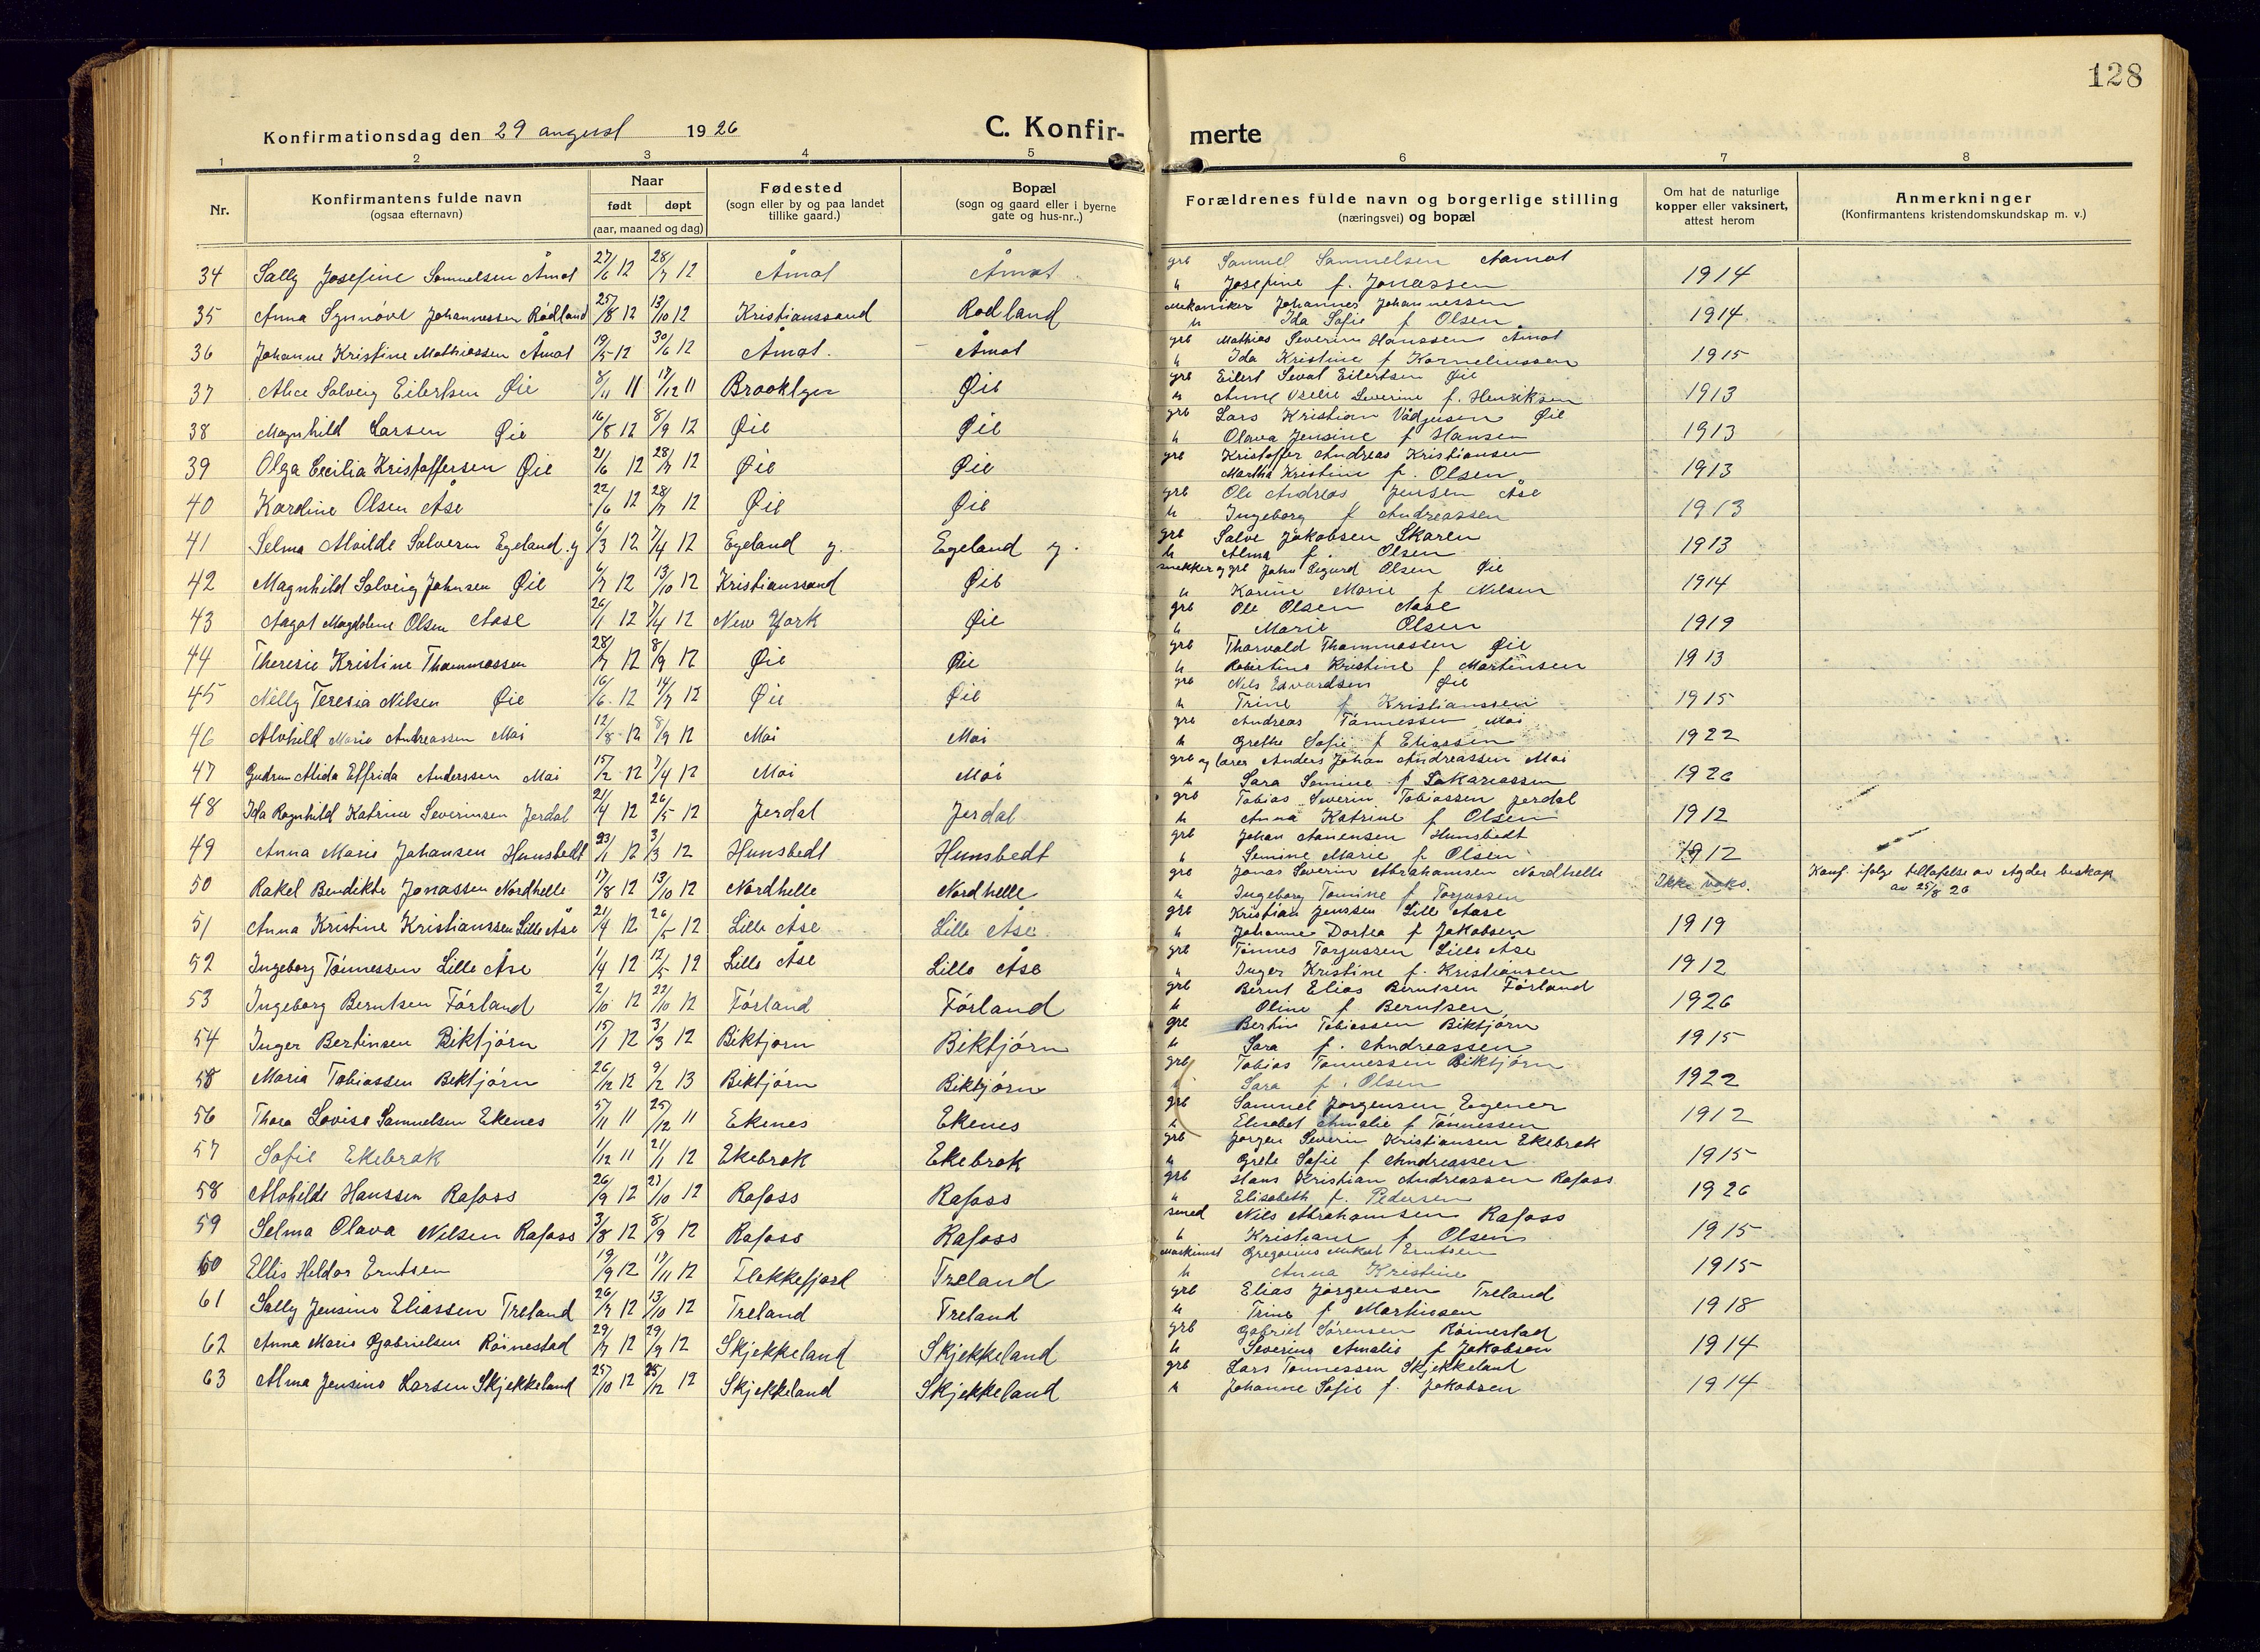 128
Konfirmationsdag den 29 august 1926
C. Konfir-merte
1 2 3 4 5 6 7 8
Nr.
Konfirmantens fulde navn
(ogsaa efternavn)
Naar
født døpt
(aar, maaned og dag)
Fødested
(sogn eller by og paa landet
tillike gaard.)
Bopæl
(sogn og gaard eller i byerne
gate og hus-nr..)
Forældrenes fulde navn og borgerlige stilling
(næringsvei) og bopæl
Om hat de naturlige
kopper eller vaksinert,
attest herom
Anmerkninger
(Konfirmantens kristendomskundskap m. v.)
34 Sally Josefine Samuelsen Åmot 27/6 12 28/7 12 Åmot Åmot grb Samuel Samuelsen Aamot 1914
h Josefine f. Jonassen
35 Anna Synnøve Johannessen Rødland 25/8 12 13/10 12 Kristianssand Rødland Mekaniker Johannes Johannessen 1914
h Ida Sofie f Olsen
36 Johanne Kristine Mathiassen Åmot 19/5 12 30/6 12 Åmot. Åmot grb Mathias Severin Hanssen Åmot 1915
h Ida Kristine f Korneliussen
37 Alice Solveig Eilertsen Øie 8/11 11 17/12 11 Brooklyn Øie grb Eilert Sevat Eilertsen Øie 1913
h Anne Severine f. Henriksen
38 Magnhild Larsen Øie 16/8 12 8/9 12 Øie Øie grb Lars Kristian Øie 1913
h Olava Jensine f Hansen
39 Olga Cecilia Kristoffersen Øie 21/6 12 28/7 12 Øie Øie grb Kristoffer Andreas Kristiansen 1913
Martha Kristine f. Olsen
40 Karoline Olsen Åse 22/6 12 28/7 12 Øie Øie grb Ole Andreas Jensen Åse 1913
h Ingeborg f Andreassen
41 Selma Alvilde Salvesen Egeland y 6/3 12 7/4 12 Egeland y. Egeland y. grb Salve Jakobsen Skaren 1913
h Alma f. Olsen
42 Magnhild Solveig Johnsen Øie 6/7 12 13/10 12 Kristianssand Øie snekker og grb John Sigurd Olsen Øie 1914
h Karine Marie f Nilsen
43 Aagot Magdalene Olsen Aase 26/1 12 7/4 12 New York Øie grb Ole Olsen Aase 1919
h Marie Olsen
44 Theresie Kristine Thommassen 28/7 12 8/9 12 Øie Øie grb Thorvald Thommassen Øie 1913
h Robertine Kristine f Martinsen
45 Nelly Teresia Nilsen Øie 16/6 12 14/7 12 Øie Øie grb Nils Edvardsen Øie 1915
h Trine f Kristianssen
46 Alvhild Marie Andreassen Moi 12/8 12 8/9 12 Moi Moi grb Andreas Tönnessen Moi 1922
h Grethe Sofie f Eliassen
47 Gudrun Alida Elfrida Anderssen Moi 15/2 12 7/4 12 Moi Moi grb og lærer Anders Johan Andreassen Moi 1926
h Sara Semine f Sakariassen
48 Ida Ragnhild Katrine Severinsen Jerdal 21/4 12 26/5 12 Jerdal Jerdal grb Tobias Severin Tobiassen Jerdal 1912
h Anna Katrine f Olsen
49 Anna Marie Johansen Hunsbedt 23/1 12 3/3 12 Hunsbedt Hunsbedt grb Johan Aanensen Hunsbedt 1912
h Semine Marie f Olsen
50 Rakel Bendikte Jonassen Nordhelle 17/8 12 13/10 12 Nordhelle Nordhelle grb Jonas Severin Abrahamsen Nordhelle Ikke vaks. Konf. ifølge tillatelse av Agder biskop
h Ingeborg Tomine f Torjussen av 25/8 26
51 Anna Kristine Kristianssen Lille Åse 21/4 12 26/5 12 Lille Åse Lille Åse grb Kristian Jenssen Lille Aase 1919
h Johanne Dortea f Jakobsen
52 Ingeborg Tönnessen Lille Åse 1/4 12 12/5 12 Lille Åse Lille Åse grb Tönnes Torgussen Lille Åse 1912
h Inger Kristine f. Kristiansen
53 Ingeborg Berntsen Förland 2/10 12 22/10 12 Förland Förland grb Bernt Elias Berntsen Förland 1926
h Oline f. Berntsen
54 Inger Bertinsen Biktjörn 15/1 12 3/3 12 Biktjorn Biktjörn grb Bertin Tobiassen Biktjörn 1915
h Sara f. Andreassen
55 Maria Tobiassen Biktjörn 26/12 12 9/2 13 Biktjörn Biktjörn grb Tobias Tonnessen Biktjörn 1922
h Sara f. Olsen
56 Thora Lovise Samuelsen Ekenes 5/11 11 25/12 11 Ekenes Ekenes grb Samuel Jørgensen 1912
h Elisabet Amalie f Tönnessen
57 Sofie Ekebrok 1/12 11 21/1 12 Ekebrok Ekebrok grb Jørgen Severin Kristiansen Ekebrok 1915
h Grete Sofie f Andreassen
58 Alvhilde Hanssen Rafoss 26/9 12 27/10 12 Rafoss Rafoss grb Hans Kristian Andreassen Rafoss 1926
h Elisabeth f. Pedersen
59 Selma Olava Nilsen Rafoss 3/8 12 8/9 12 Rafoss Rafoss smed Nils Abrahamsen Rafoss 1915
h Kristiane f Olsen
60 Ellis Heldor Erntsen 19/9 12 17/11 12 Flekkefjord Treland Maskinist Gregorius Mikal Erntsen 1915
h Anna Kristine
61 Sally Jensine Eliassen Treland 26/7 12 13/10 12 Treland Treland grb Elias Jörgensen Treland 1918
h Trine f Martinssen
62 Anna Marie Gabrielsen Röinestad 29/7 12 29/9 12 Skjekkeland Skjekkeland grb Gabriel Sörensen Röinestad 1914
h Severine Amalie f Jakobsen
63 Alma Jensine Larsen Skjekkeland 25/10 12 25/12 12 Skjekkeland Skjekkeland grb Lars Tonnessen Skjekkeland 1914
h Johanne Sofie f. Jakobsen